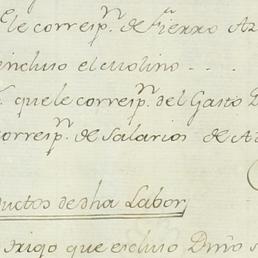 le corresp.n de Fierro
incluso el molino . . .
que le corresp.n del Gasto
corresp.n de Salarios de
ductos de dha Labor
trigo que excluso Dmo